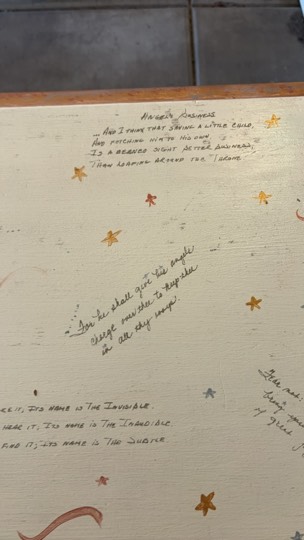 Angels Business
...And I think that saving a little child,
And fetching him to his own,
Is a derned sight better business,
Than loafing around the Throne
For he shall give his angels
charge over thee to keep thee
in all thy ways.
ee it, Its name is The Invisible.
hear it, Its name is The Inaudible
find it, Its name is The Subtle
Fear not:
bring you
of great